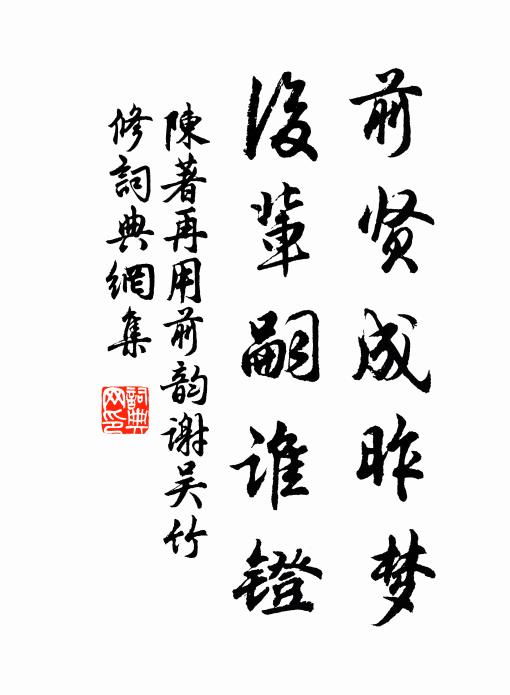 前贤成昨梦
後輩嗣谁镫
陳著再用前韵谢吴竹
修詞典網集
詞典網印